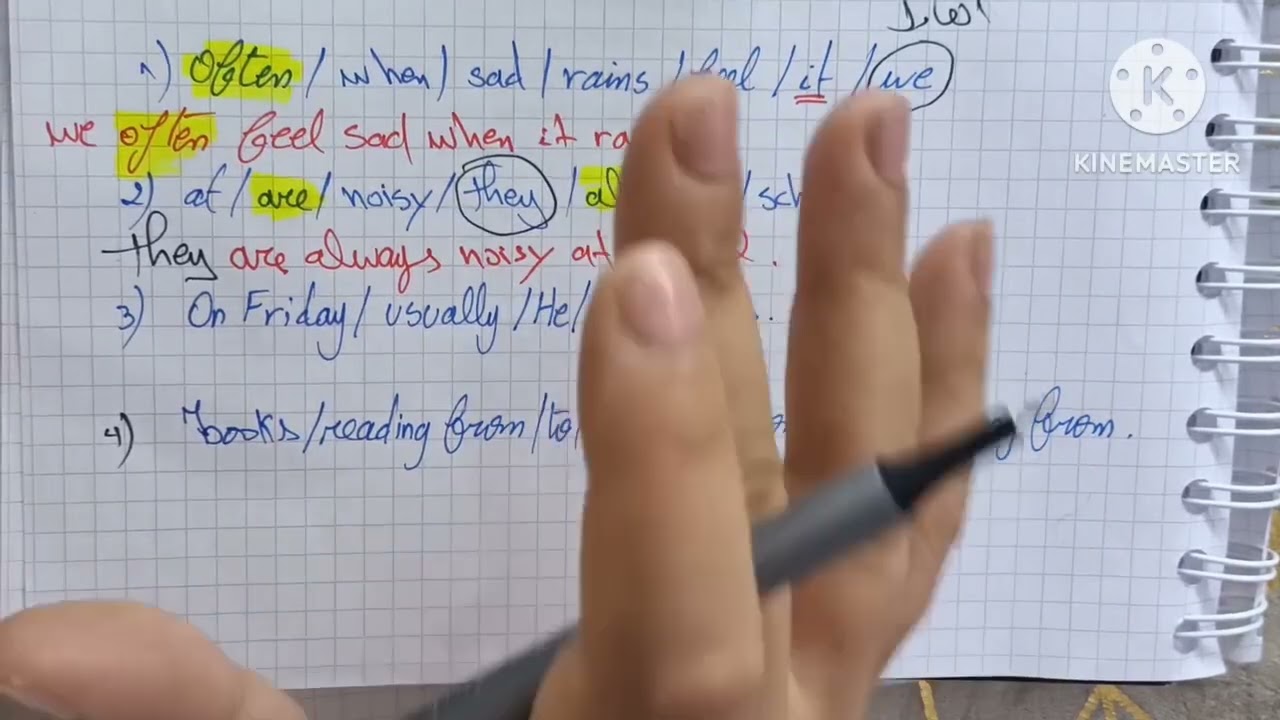 1) Often / when / sad / rains / / it / we
we often feel sad when it
2) at / are / noisy / they / /
they are always noisy at
3) On Friday / usually / He /
4) books / reading from / to from.
KINEMASTER